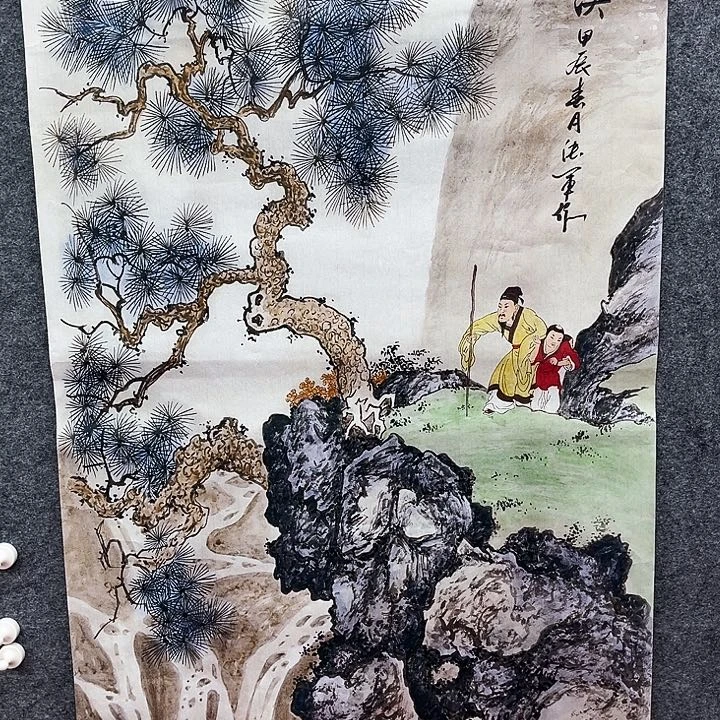 甲辰春月德军作